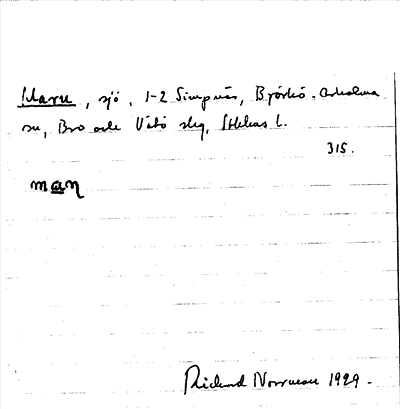 Maren, sjö, 1-2 Simpnäs, Björkö-Arholma
sn, Bro och Vätö skg, Sthlms l.
315.
man
Rickard Norrman 1929.